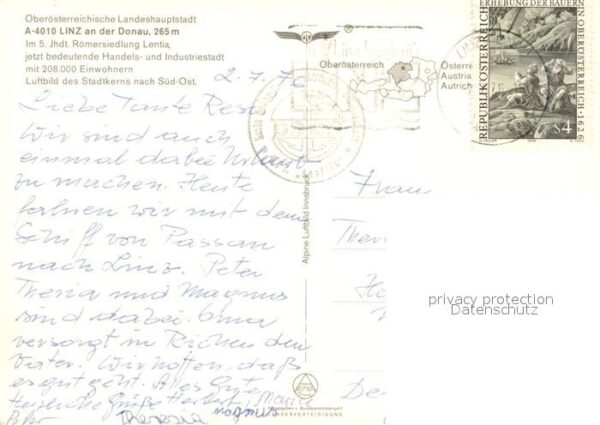 Oberösterreichische Landeshauptstadt
A-4010 LINZ an der Donau, 265 m
Im 5. Jhdt. Römersiedlung Lentia,
jetzt bedeutende Handels- und Industriestadt
mit 208.000 Einwohnern
Luftbild des Stadtkerns nach Süd-Ost.
2.7.76
Liebe Tante Resi
Wir sind auch
einmal dabei Urlaub
zu machen. Heute
fahren wir mit dem
Schiff von Passau
nach Linz. Peter
Theria und Magnus
sind dabei. Oma
versorgt in Richen den
Vater. Wir hoffen, daß
es gut geht. Alles Gute
Herzliche Grüße Herbert, Maria
Peter Theresia Magnus
Oberösterreich
Österreich
Austria
Autrich
REPUBLIK ÖSTERREICH
ERHEBUNG DER BAUERN
IN OBERÖSTERREICH · 1626
S4
Alpine Luftbild Innsbruck
Frau
Ther
privacy protection
Datenschutz
De
LANDESVERTEIDIGUNG